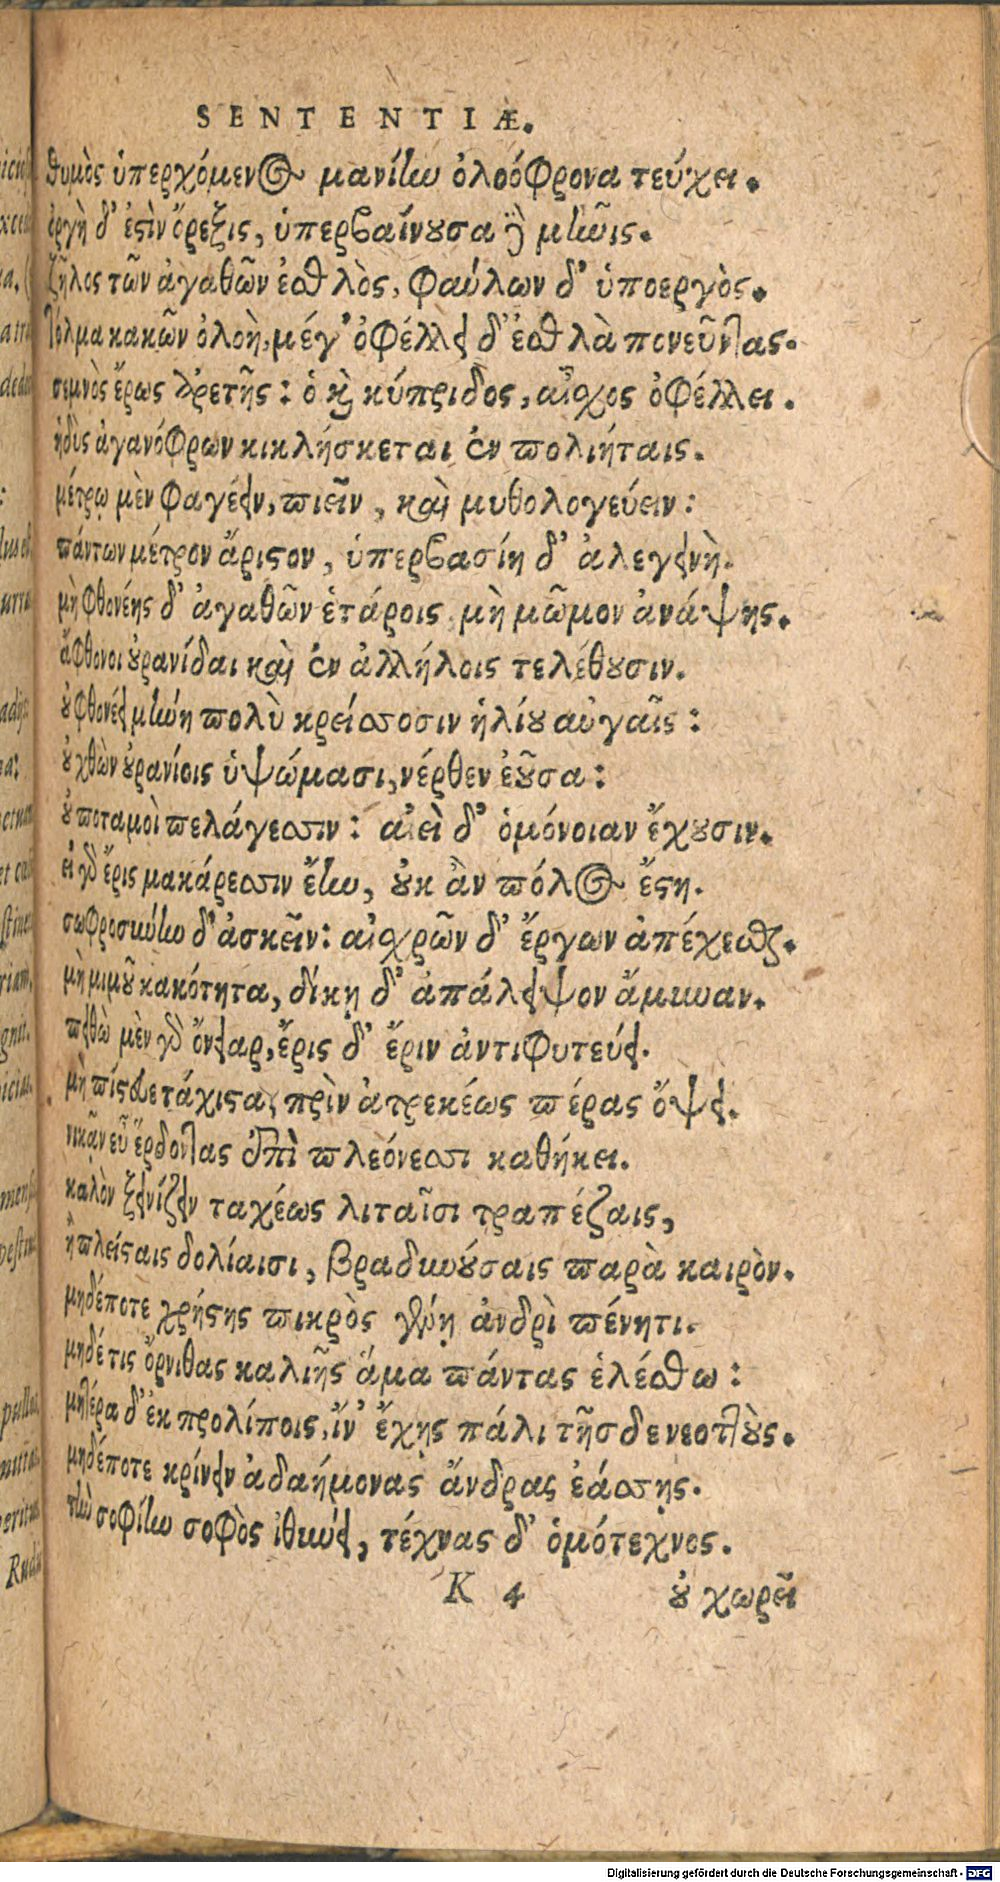 SENTENTIÆ.
θυμὸς ὑπερχόμενος μανίην ὀλοόφρονα τεύχει.
ὀργὴ δ' ἐστὶν ὄρεξις, ὑπερβαίνουσα δὲ μῆνις.
ζῆλος τῶν ἀγαθῶν ἐσθλὸς, φαύλων δ' ὑποεργὸς.
τόλμα κακῶν ὀλοὴ, μέγ' ὀφέλλει δ' ἐσθλὰ πονεῦντας.
σεμνὸς ἔρως ἀρετῆς: ὁ καὶ κύπριδος, αἶσχος ὀφέλλει.
ἡδὺς ἀγανόφρων κικλήσκεται ἐν πολιήταις.
μέτρῳ μὲν φαγέειν, πιεῖν, καὶ μυθολογεύειν:
πάντων μέτρον ἄριστον, ὑπερβασίη δ' ἀλεγεινὴ.
μὴ φθονέῃς δ' ἀγαθῶν ἑτάροις, μὴ μῶμον ἀνάψῃς.
ἄφθονοι οὐρανίδαι καὶ ἐν ἀλλήλοις τελέθουσιν.
οὐ φθονέει μήνη πολὺ κρείσσοσιν ἡλίου αὐγαῖς:
οὐ χθὼν οὐρανίοις ὑψώμασι, νέρθεν ἐοῦσα:
οὐ ποταμοὶ πελάγεσσιν: αἰεὶ δ' ὁμόνοιαν ἔχουσιν.
εἰ γὰρ ἔρις μακάρεσσιν ἔην, οὐκ ἂν πόλος ἔστη.
σωφροσύνην δ' ἀσκεῖν: αἰσχρῶν δ' ἔργων ἀπέχεσθαι.
μὴ μιμοῦ κακότητα, δίκῃ δ' ἀπάλειψον ἄμυναν.
πειθὼ μὲν γὰρ ὄνειαρ, ἔρις δ' ἔριν ἀντιφυτεύει.
μὴ πίστευε τάχιστα, πρὶν ἀτρεκέως πέρας ὄψει.
νικᾷν εὖ ἕρδοντας ἐπὶ πλεόνεσσι καθήκει.
καλὸν ξεινίζειν ταχέως λιταῖσι τραπέζαις,
ἢ πλείσταις δολίαισι, βραδυνούσαις παρὰ καιρὸν.
μηδέποτε χρήστης πικρὸς γένῃ ἀνδρὶ πένητι.
μηδέ τις ὄρνιθας καλιῆς ἅμα πάντας ἑλέσθω:
μητέρα δ' ἐκ προλίποις, ἵν' ἔχῃς πάλι τῆσδε νεοττοὺς.
μηδέποτε κρίνειν ἀδαήμονας ἄνδρας ἐάσσῃς.
τὴν σοφίην σοφὸς ἰθύνει, τέχνας δ' ὁμότεχνος.
K 4 οὐ χωρεῖ
Digitalisierung gefördert durch die Deutsche Forschungsgemeinschaft - DFG